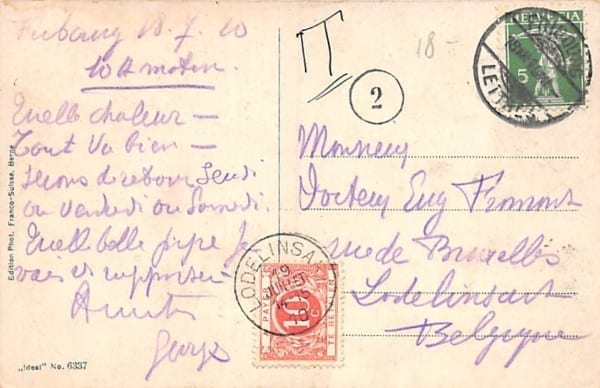 Fribourg 18.7.10
10 H matin.
Quelle chaleur —
Tout va bien —
Serons de retour Jeudi
ou Vendredi ou Samedi.
Quelle belle pipe je
vais rapporter
Georges
Edition Phot. Franco-Suisse, Berne
„Ideal" No. 6337
T
2
18 -
HELVETIA
5
LETTRES
Monsieur
Docteur Eug Fromont
rue de Bruxelles
Lodelinsart
Belgique
LODELINSART
19
JUIL
10
A PAYER
10
C
TE BETALEN